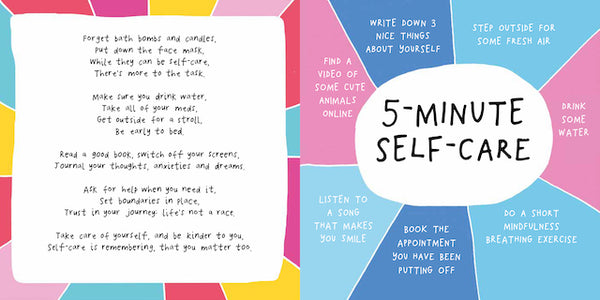 Forget bath bombs and candles,
Put down the face mask,
While they can be self-care,
There's more to the task.
Make sure you drink water,
Take all of your meds,
Get outside for a stroll,
Be early to bed.
Read a good book, switch off your screens,
Journal your thoughts, anxieties and dreams.
Ask for help when you need it,
Set boundaries in place,
Trust in your journey: life's not a race.
Take care of yourself, and be kinder to you,
Self-care is remembering, that you matter too.
5-MINUTE
SELF-CARE
WRITE DOWN 3
NICE THINGS
ABOUT YOURSELF
STEP OUTSIDE FOR
SOME FRESH AIR
DRINK
SOME
WATER
DO A SHORT
MINDFULNESS
BREATHING EXERCISE
BOOK THE
APPOINTMENT
YOU HAVE BEEN
PUTTING OFF
LISTEN TO
A SONG
THAT MAKES
YOU SMILE
FIND A
VIDEO OF
SOME CUTE
ANIMALS
ONLINE